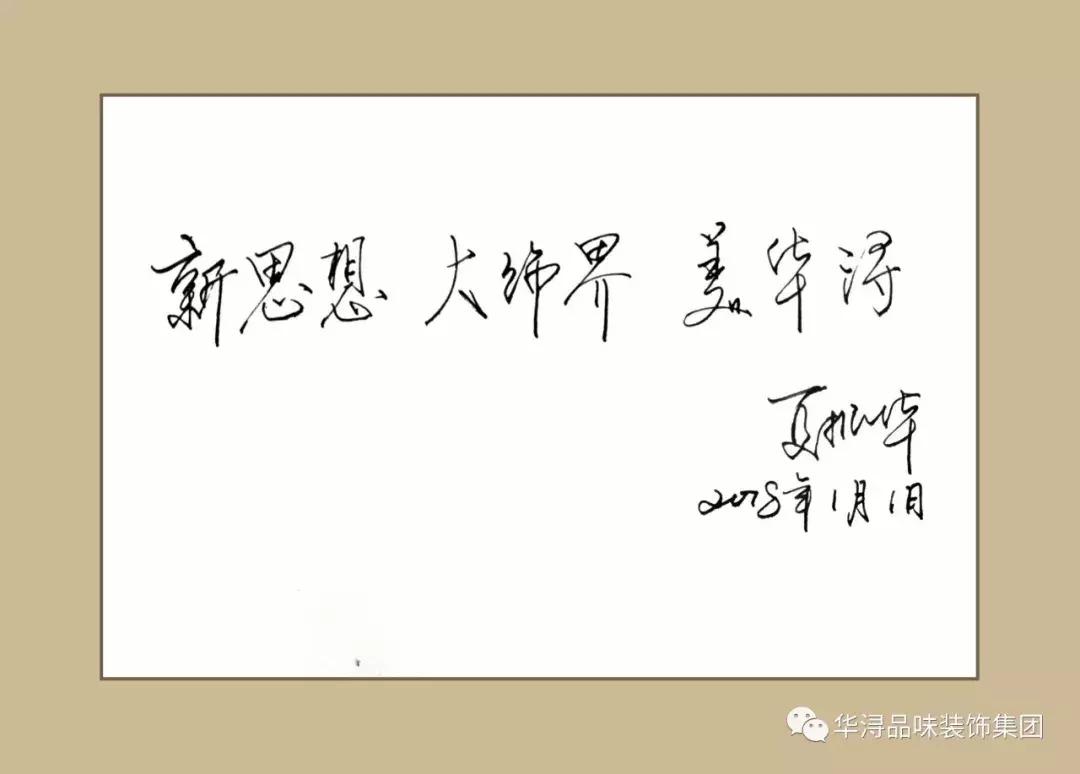 新思想 大饰界 美华浔
夏振华
2018年1月1日
华浔品味装饰集团